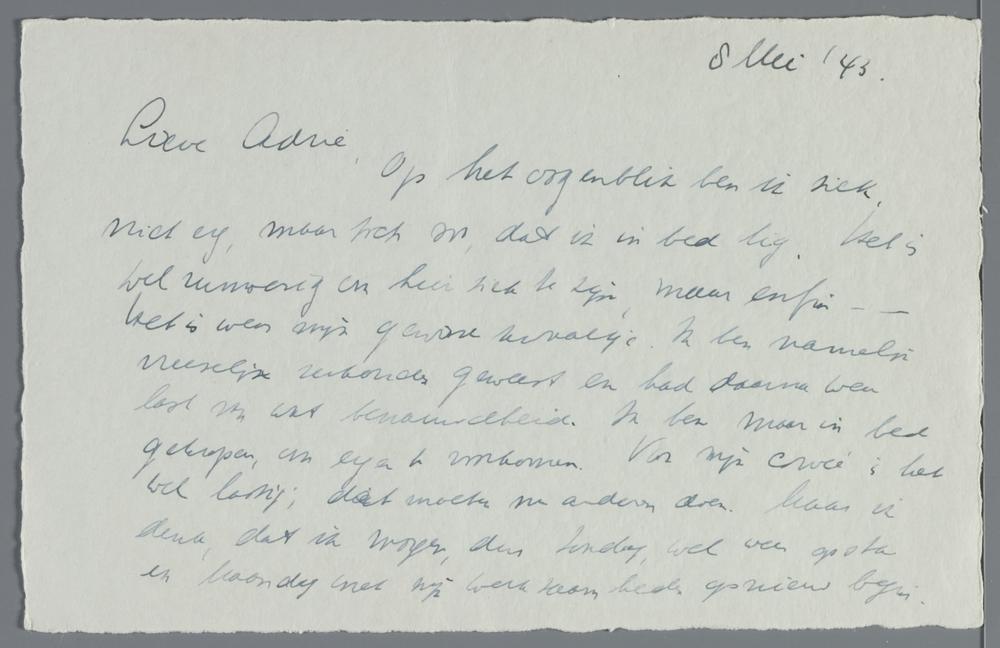 8 Mei '43.
Lieve Adrie,
Op het oogenblik ben ik ziek,
niet erg, maar toch zoo, dat ik in bed lig. Het is
wel zenuwerig om hier ziek te zijn, maar enfin - -
Het is weer mijn gewone kwaaltje. Ik ben namelijk
vreeselijk verkouden geweest en had daarna weer
last van wat benauwdheid. Ik ben maar in bed
gekropen, om erger te voorkomen. Voor mijn corvée is het
wel lastig; dat moeten nu anderen doen. Maar ik
denk, dat ik morgen, dus Zondag, wel weer opsta
en Maandag met mijn werkzaamheden opnieuw begin.